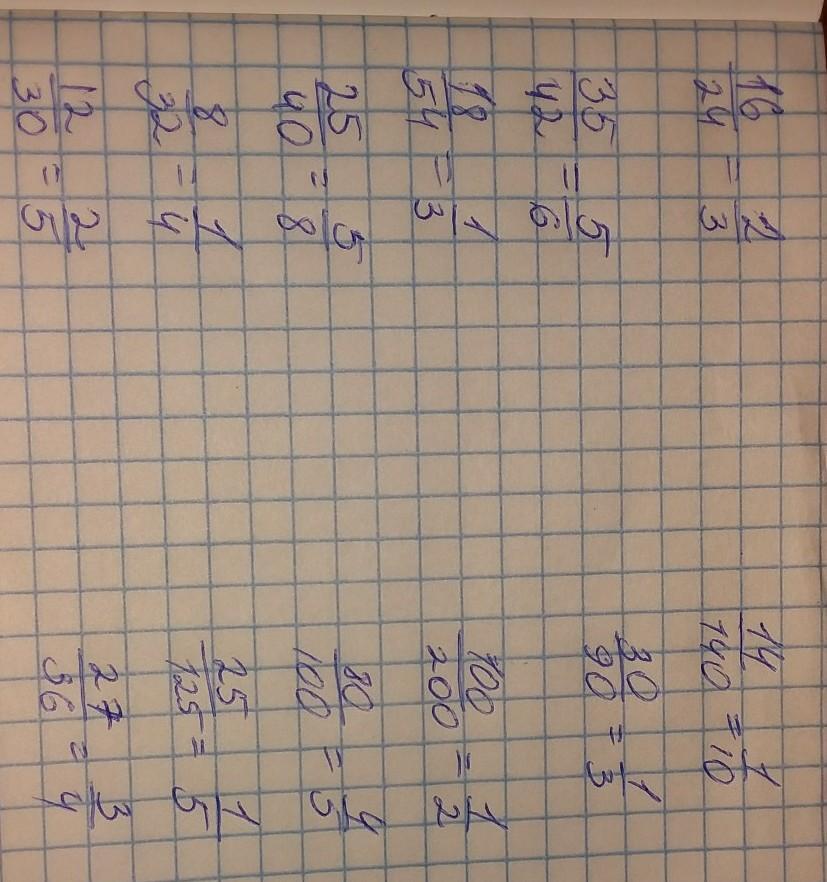 16/24 = 2/3
35/42 = 5/6
18/54 = 1/3
25/40 = 5/8
8/32 = 1/4
12/30 = 2/5
14/140 = 1/10
30/90 = 1/3
100/200 = 1/2
80/100 = 4/5
25/125 = 1/5
27/36 = 3/4